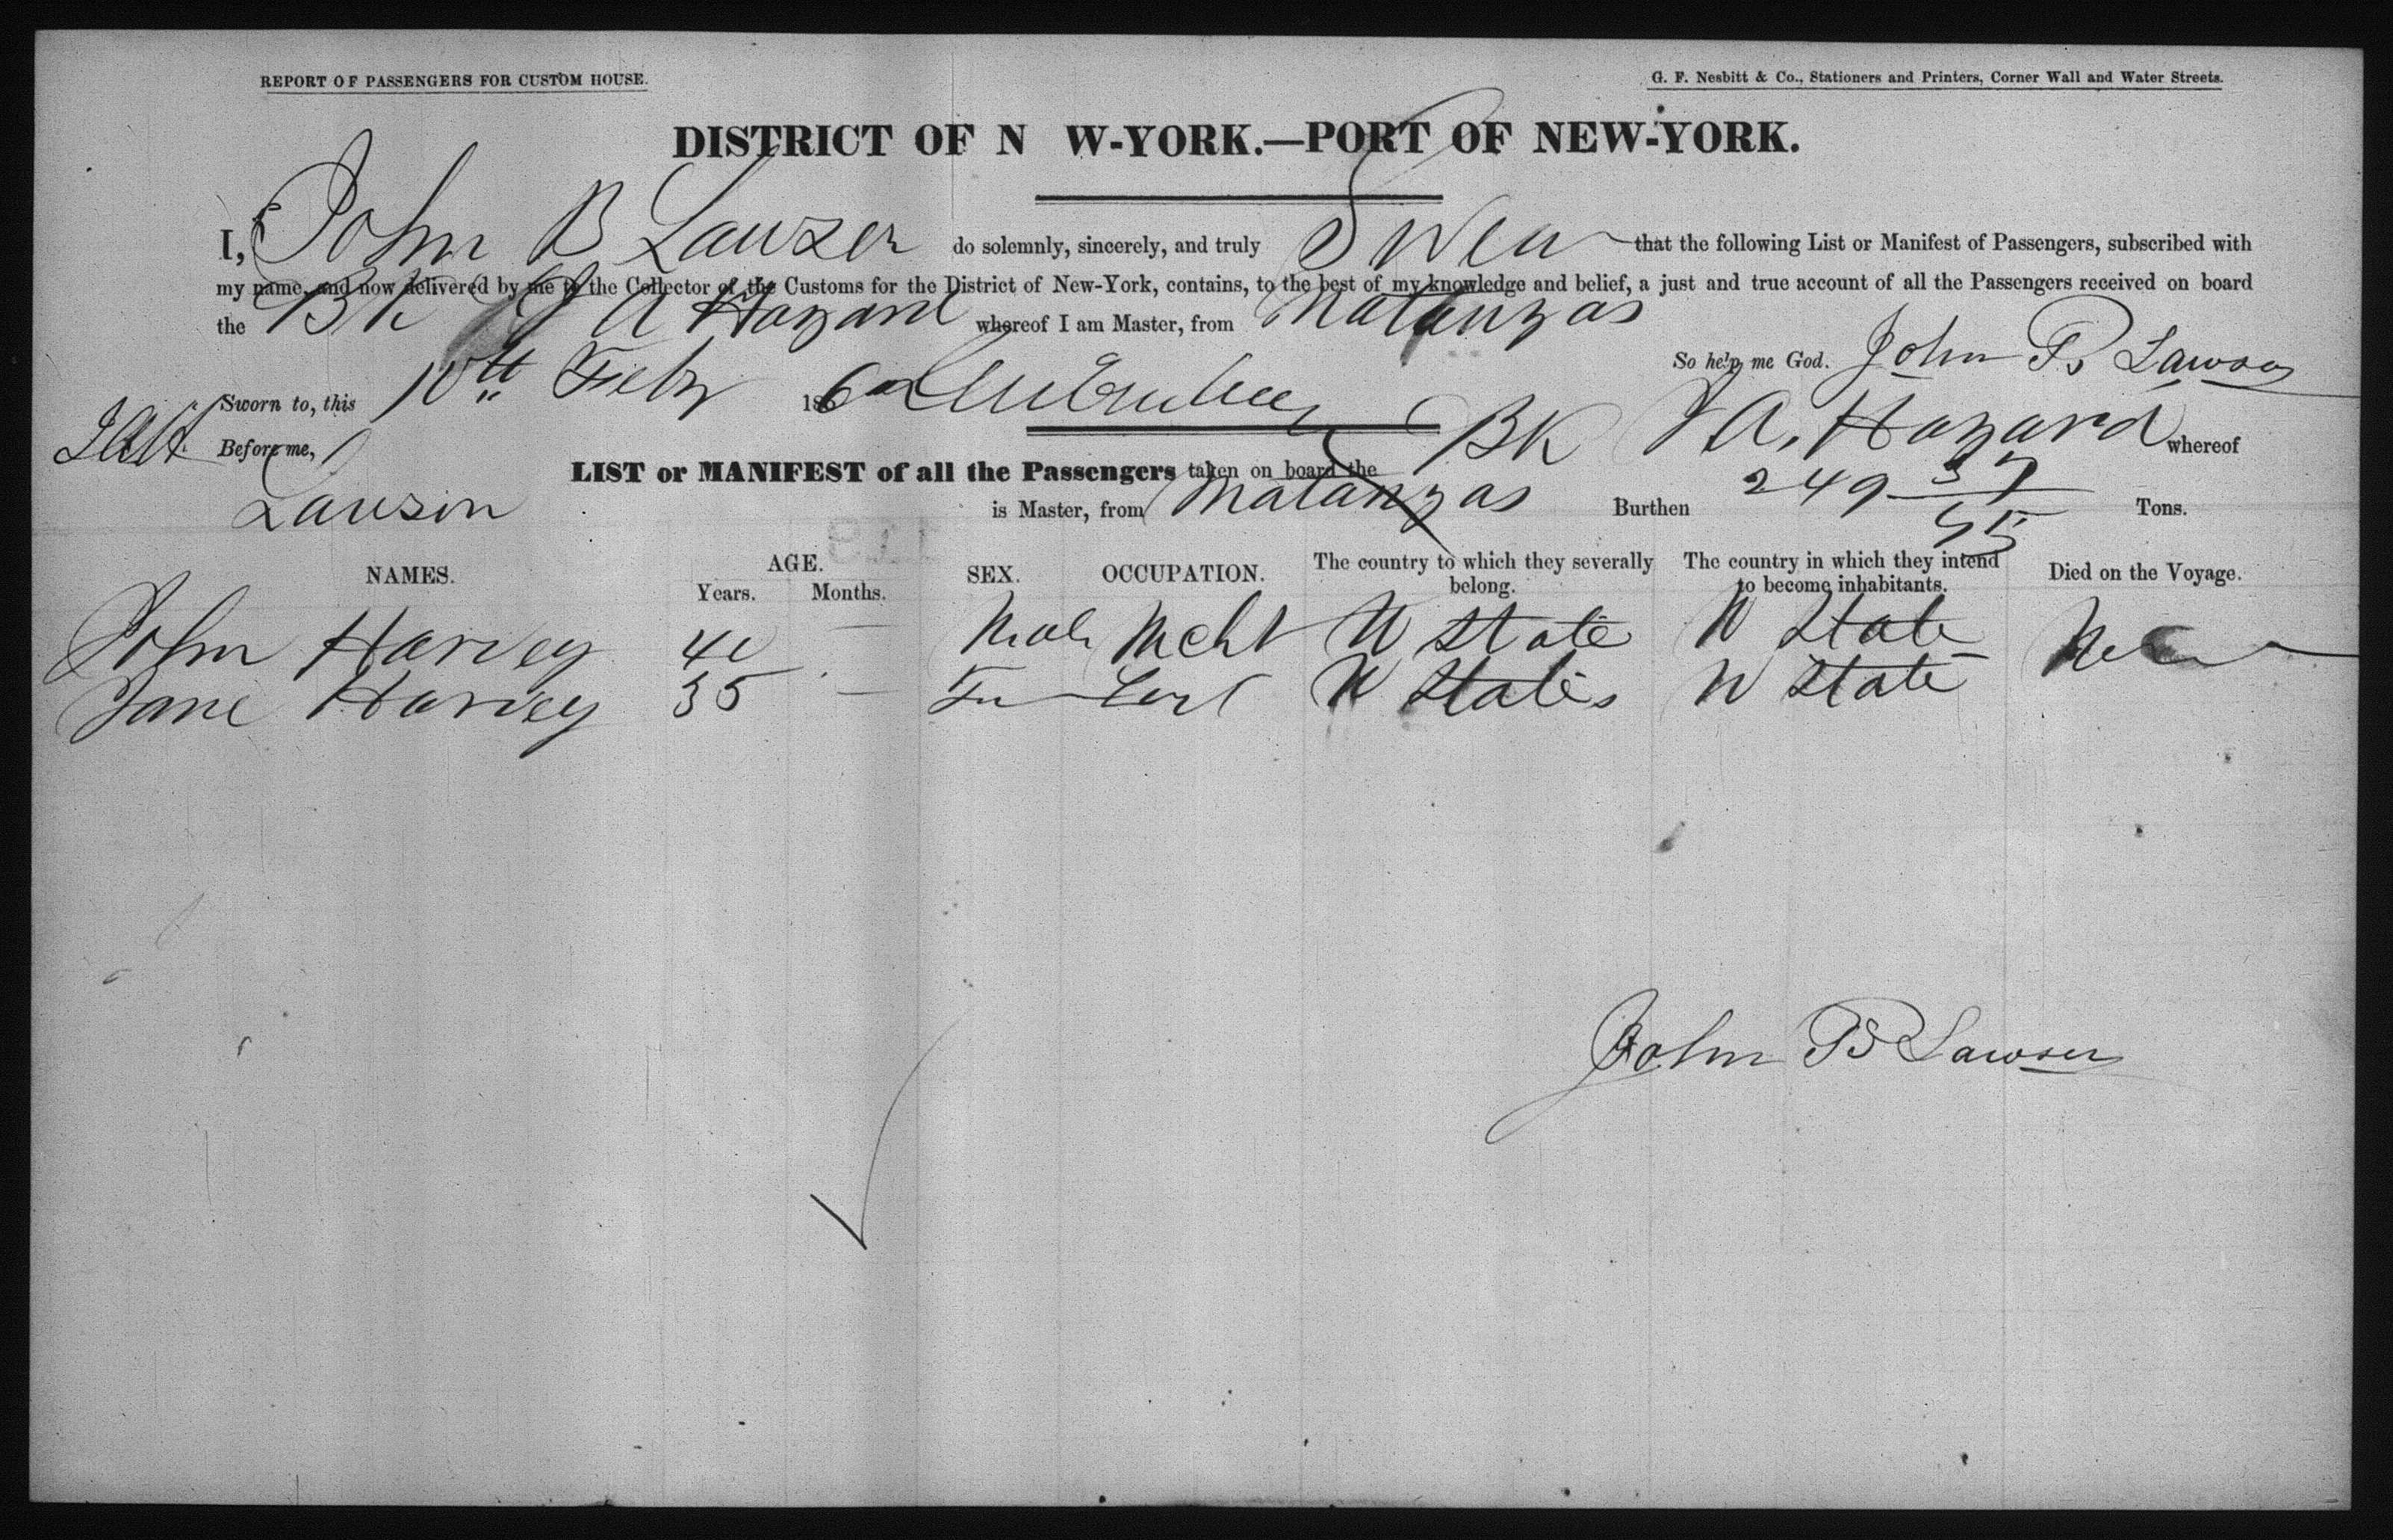 REPORT OF PASSENGERS FOR CUSTOM HOUSE.
G. F. Nesbitt & Co., Stationers and Printers, Corner Wall and Water Streets.
DISTRICT OF N W-YORK.—PORT OF NEW-YORK.
I, John B Lawson do solemnly, sincerely, and truly Swear that the following List or Manifest of Passengers, subscribed with
my name, and now delivered by me to the Collector of the Customs for the District of New-York, contains, to the best of my knowledge and belief, a just and true account of all the Passengers received on board
the Bk J A Hazard whereof I am Master, from Matanzas
So help me God. John B Lawson
Sworn to, this 10th Feby 186
Before me,
LIST or MANIFEST of all the Passengers taken on board the BK J A. Hazard whereof
Lawson is Master, from Matanzas Burthen 249 37/95 Tons.
NAMES. AGE. Years. Months. SEX. OCCUPATION. The country to which they severally belong. The country in which they intend to become inhabitants. Died on the Voyage.
John Harvey 40 — Male Mcht U State U State
Jane Harvey 35 — Fm U States U State
John B Lawson